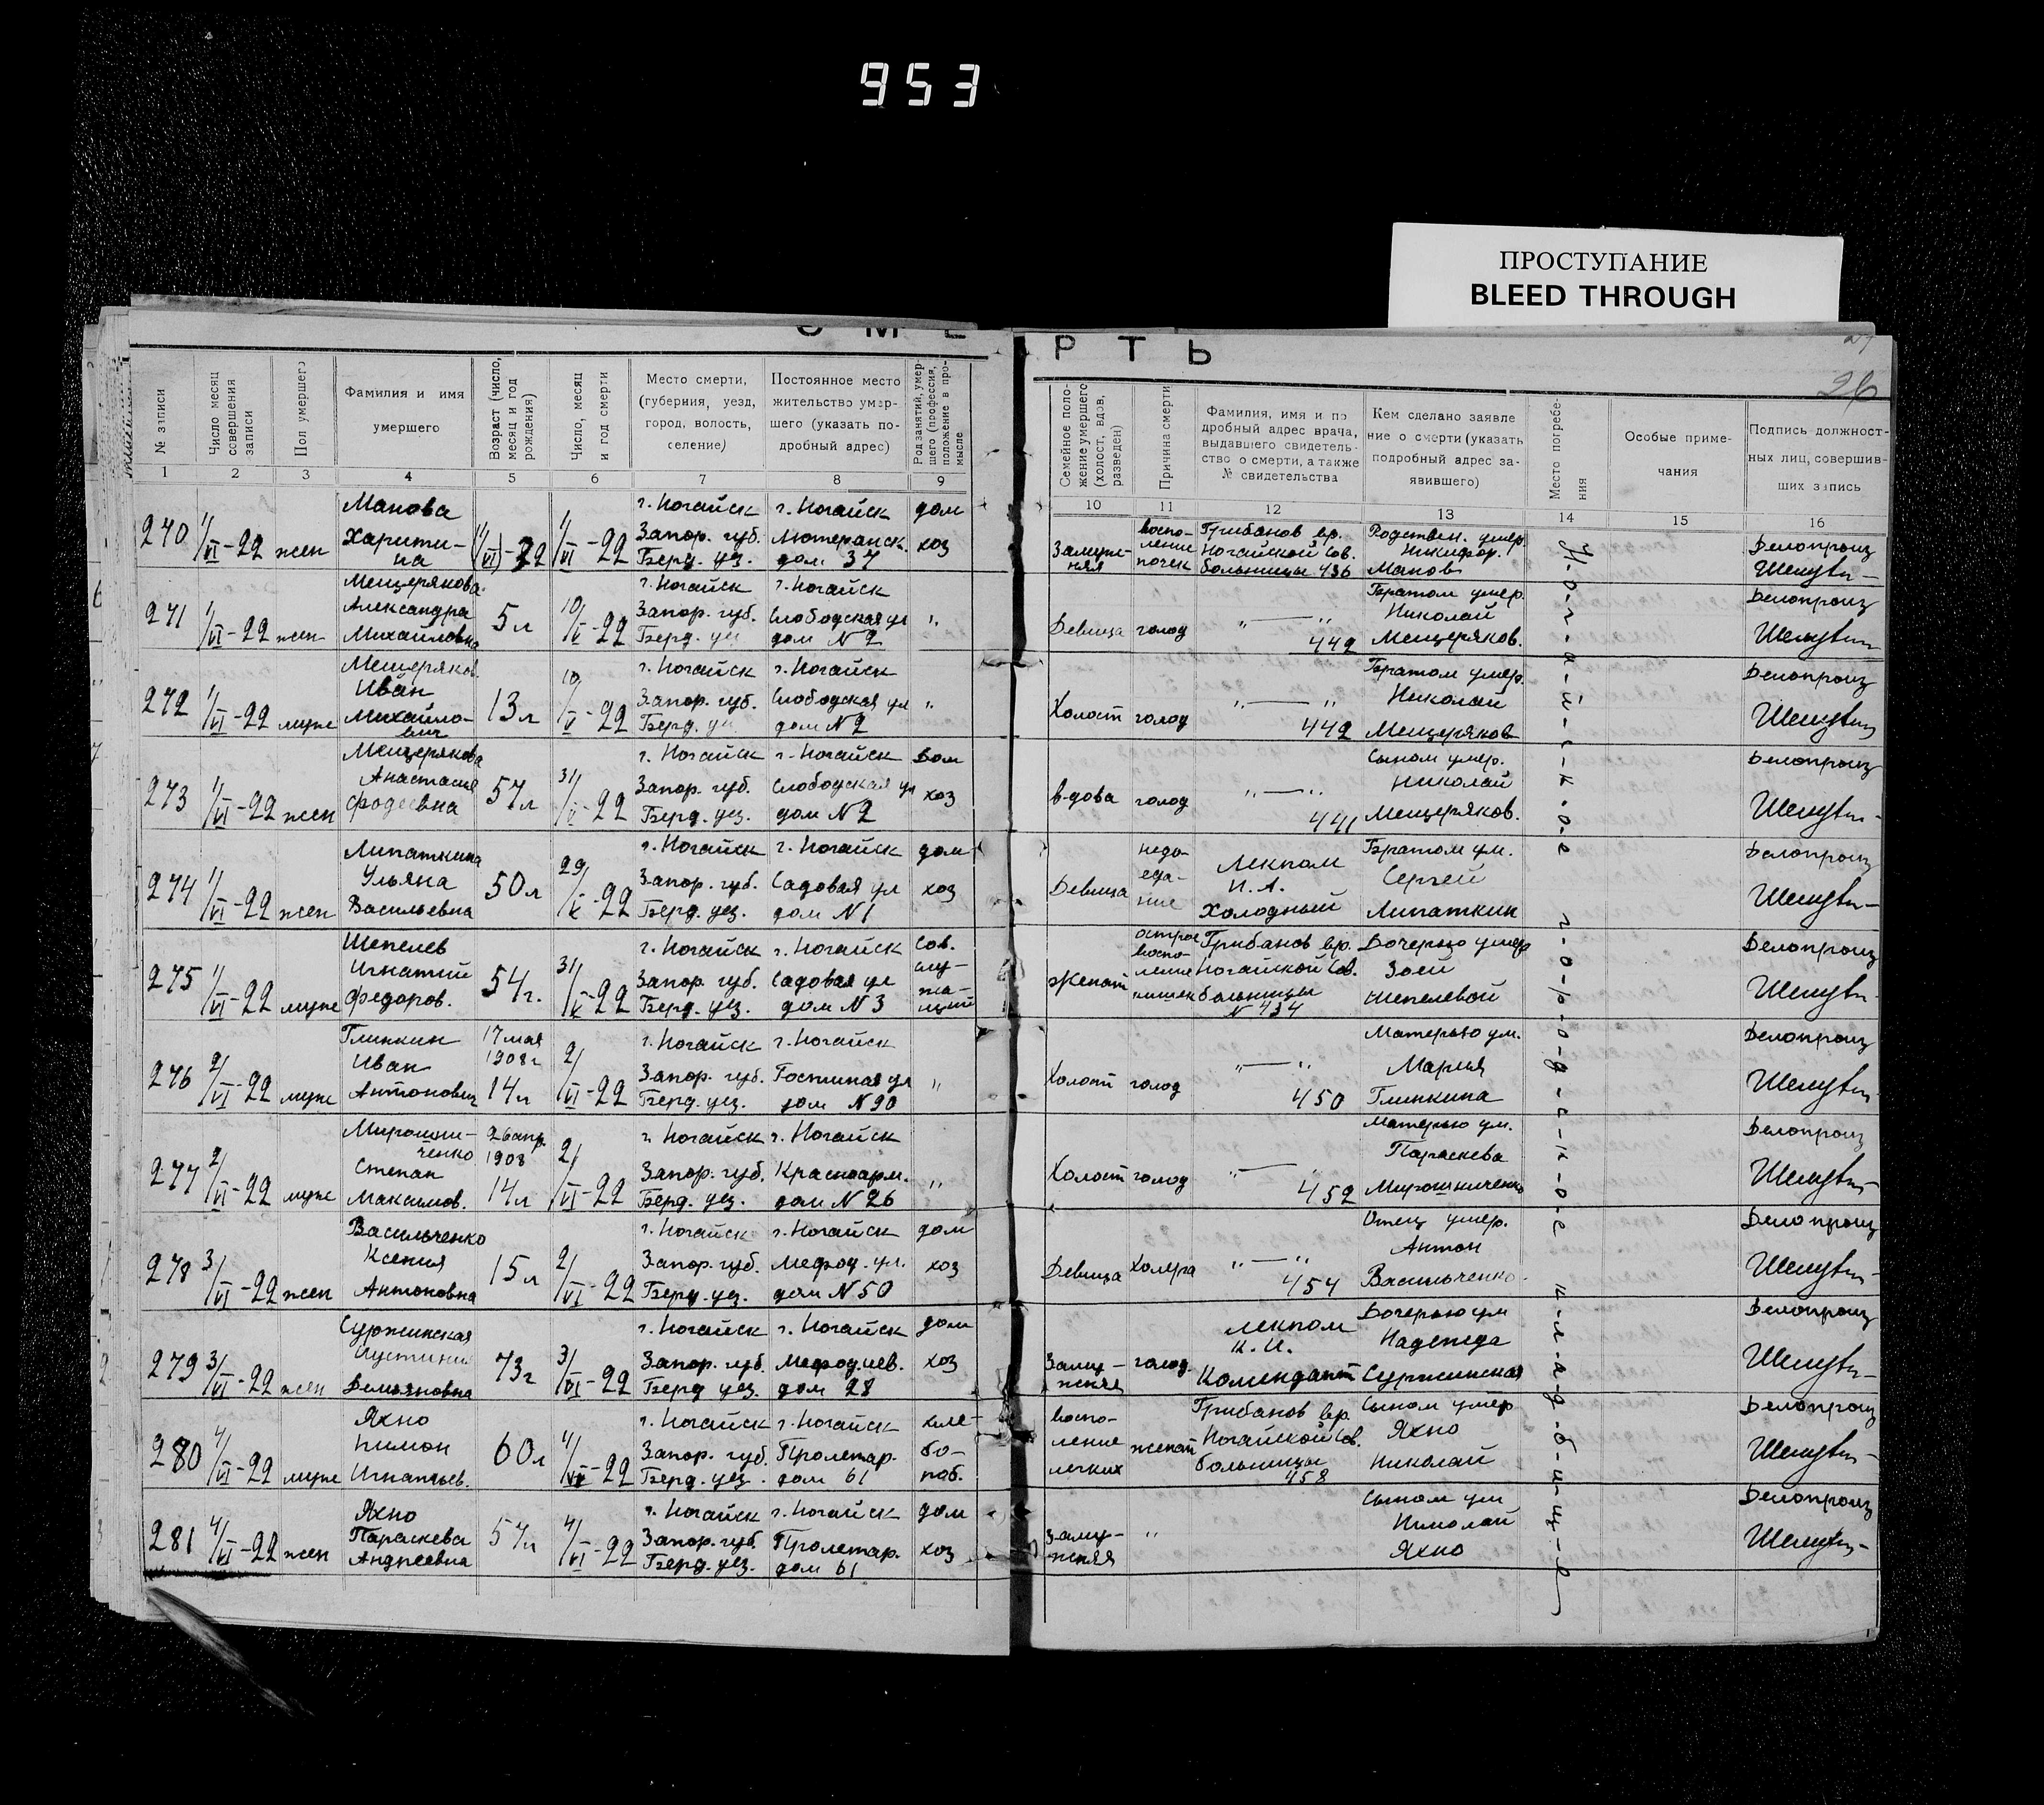 953
ПРОСТУПАНИЕ
BLEED THROUGH
С М Е Р Т Ь
26
№ записи
Число месяц совершения записи
Пол умершего
Фамилия и имя умершего
Возраст (число, месяц и год рождения)
Число, месяц и год смерти
Место смерти, (губерния, уезд, город, волость, селение)
Постоянное место жительство умершего (указать подробный адрес)
Род занятий, умершего (профессия, положение в промысле
Семейное положение умершего (холост, вдов, разведен)
Причина смерти
Фамилия, имя и подробный адрес врача, выдавшего свидетельство о смерти, а также № свидетельства
Кем сделано заявление о смерти (указать подробный адрес заявившего)
Место погребения
Особые примечания
Подпись должностных лиц, совершивших запись
1 2 3 4 5 6 7 8 9 10 11 12 13 14 15 16
270 1/VI-22 жен Манова Харити-на 1/VI-22 г. Ногайск Запор. губ. Берд. уз. г. Ногайск Лютеранск. дом 37 дом хоз Замуж-няя воспо-ление почек Грибанов вр. Ногайской сов. больницы 436 Родствен. умер. Никифор Манов Делопроиз
271 1/VI-22 жен Мещерякова Александра Михайловна 5 л 10/V-22 г. Ногайск Запор. губ. Берд. уз г. Ногайск Слободская ул дом N 2 " Девица голод "—" 442 Братом умер. Николай Мещеряков. Делопроиз
272 1/VI-22 муж Мещеряков Иван Михайло-вич 13 л 10/V-22 г. Ногайск Запор. губ. Берд. уз г. Ногайск Слободская ул дом N 2 " Холост голод "—" 442 Братом умер. Николай Мещеряков Делопроиз
273 1/VI-22 жен Мещерякова Анастасия Фадеевна 57 л 31/V-22 г. Ногайск Запор. губ. Берд. уез. г. Ногайск Слободская ул дом N 2 Дом хоз в-дова голод "—" 441 Сыном умер. Николай Мещеряков. Делопроиз
274 1/VI-22 жен Липаткина Ульяна Васильевна 50 л 29/V-22 г. Ногайск Запор. губ. Берд. уез. г. Ногайск Садовая ул дом N 1 дом хоз Девица недо-еда-ние Лекпом И. А. Холодный Братом ум. Сергей Липаткин Делопроиз
275 1/VI-22 муж Шепелев Игнатий Федоров. 54 г. 31/V-22 г. Ногайск Запор. губ. Берд. уез. г. Ногайск Садовая ул дом N 3 Сов. слу-жа-щий Женат острое воспо-ление кишек Грибанов вр. Ногайской Сов. больницы N 434 Дочерью умер Зоей Шепелевой Делопроиз
276 2/VI-22 муж Глинкин Иван Антонович 17 мая 1908 г 14 л 2/VI-22 г. Ногайск Запор. губ. Берд. уез. г. Ногайск Гостиная ул дом N 90 " Холост голод "—" 450 Матерью ум. Мария Глинкина Делопроиз
277 2/VI-22 муж Мирошни-ченко Степан Максимов. 26 апр. 1908 г 14 л 2/VI-22 г. Ногайск Запор. губ. Берд. уез. г. Ногайск Красноарм. дом N 26 " Холост голод "—" 452 Матерью ум. Параскева Мирошниченко Делопроиз
278 3/VI-22 жен Васильченко Ксения Антоновна 15 л 2/VI-22 г. Ногайск Запор. губ. Берд. уез. г. Ногайск Мефод. ул. дом N 50 дом хоз Девица Холера "—" 454 Отец умер. Антон Васильченко. Делопроиз
279 3/VI-22 жен Суржинская Иустиния Демьяновна 73 г 3/VI-22 г. Ногайск Запор. губ. Берд уез. г. Ногайск Мефодиев. дом 28 дом хоз Заму-жняя голод. Лекпом К. И. Комендант Дочерью ум Надежда Суржинская Делопроиз
280 4/VI-22 муж Яхно Пимон Игнатьев. 60 л 4/VI-22 г. Ногайск Запор. губ. Берд. уез. г. Ногайск Пролетар. дом 61 хле-бо-паб. воспо-ление легких женат Грибанов вр. Ногайской Сов. больницы 458 Сыном умер Яхно Николай Делопроиз
281 4/VI-22 жен Яхно Параскева Андреевна 57 л 4/VI-22 г. Ногайск Запор. губ. Берд. уез. г. Ногайск Пролетар. дом 61 дом хоз Заму-жняя " Сыном ум Николай Яхно Делопроиз
Н-о-г-а-й-с-к-о-е г-о-р-о-д-с-к-о-е к-л-а-д-б-и-щ-е